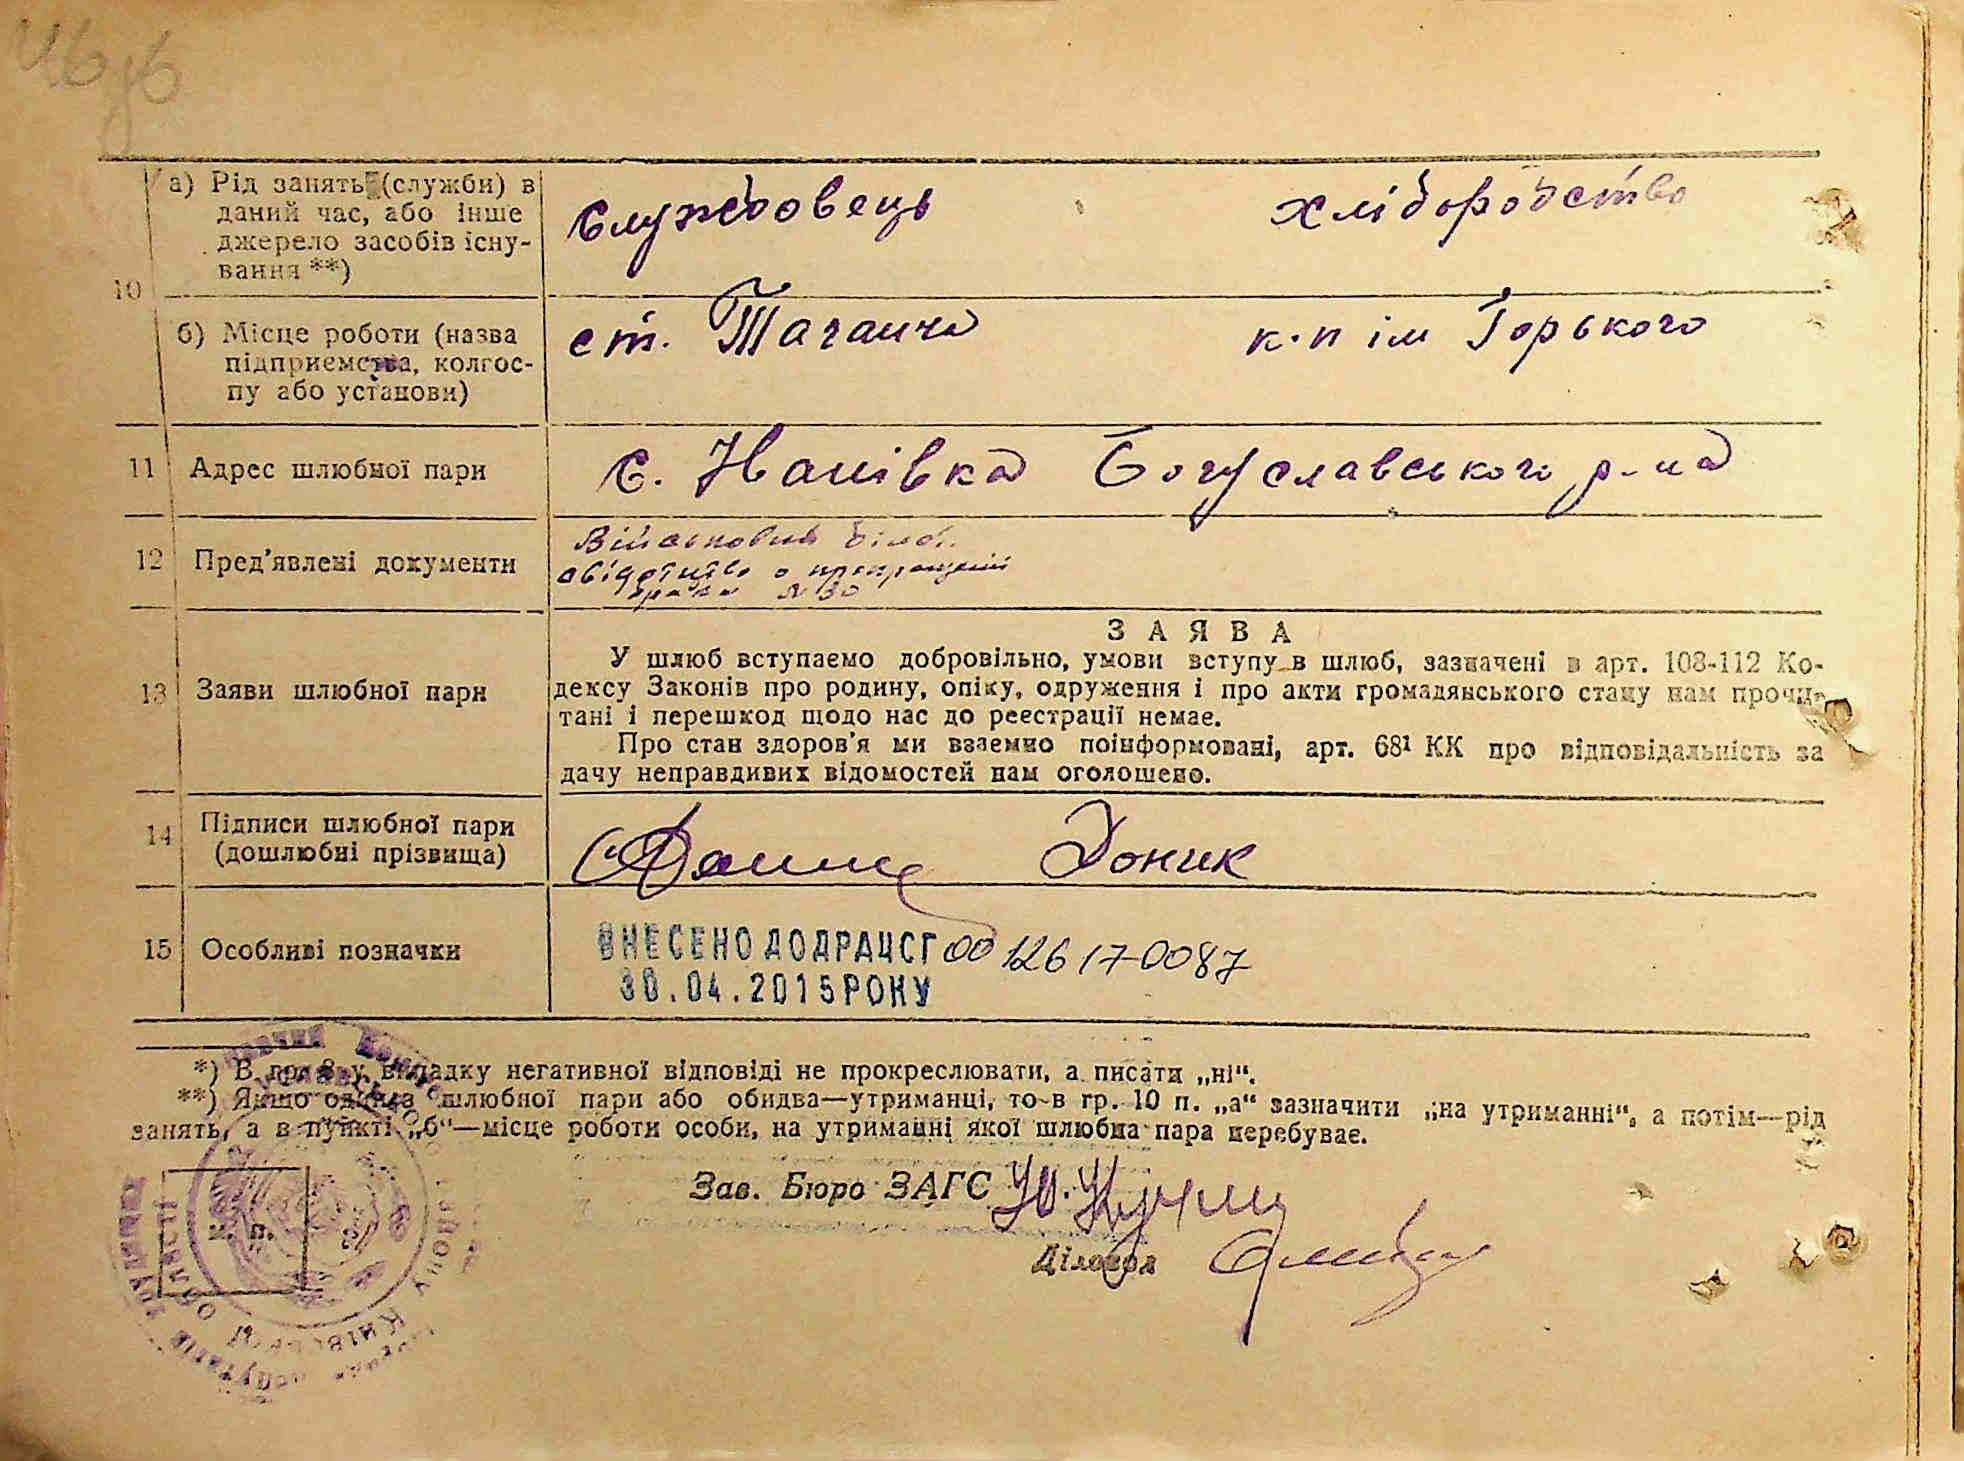 а) Рід занять (служби) в
даний час, або інше
джерело засобів існу-
вання **)
службовець хліборобство
10
б) Місце роботи (назва
підприємства, колгос-
пу або установи)
ст. Таганча к-п ім Горького
11 Адрес шлюбної пари
с. Іванівка Богуславського р-на
12 Пред'явлені документи
Військовий білет
свідотство о прекращении
брака №30
13 Заяви шлюбної пари
ЗАЯВА
У шлюб вступаємо добровільно, умови вступу в шлюб, зазначені в арт. 108-112 Ко-
дексу Законів про родину, опіку, одруження і про акти громадянського стану нам прочи-
тані і перешкод щодо нас до реєстрації немає.
Про стан здоров'я ми взаємно поінформовані, арт. 68¹ КК про відповідальність за
дачу неправдивих відомостей нам оголошено.
14 Підписи шлюбної пари
(дошлюбні прізвища)
Доник
15 Особливі позначки
ВНЕСЕНО ДО ДРАЦСГ 00126170087
30.04.2015 РОКУ
*) В гр. 8 у випадку негативної відповіді не прокреслювати, а писати „ні“.
**) Якщо один з шлюбної пари або обидва—утриманці, то в гр. 10 п. „а“ зазначити „на утриманні“, а потім—рід
занять, а в пункті „б“—місце роботи особи, на утриманні якої шлюбна пара перебуває.
Зав. Бюро ЗАГС
Діловод
М. П.